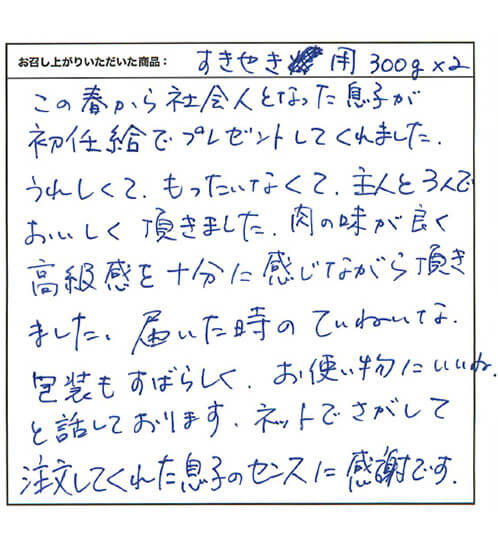 お召し上がりいただいた商品： すきやき用 300g×2
この春から社会人となった息子が
初任給でプレゼントしてくれました.
うれしくて. もったいなくて. 主人と3人で
おいしく 頂きました. 肉の味が良く
高級感を十分に感じながら頂き
ました. 届いた時の ていねいな.
包装もすばらしく. お使い物にいいね.
と話しております. ネットでさがして
注文してくれた息子のセンスに感謝です.